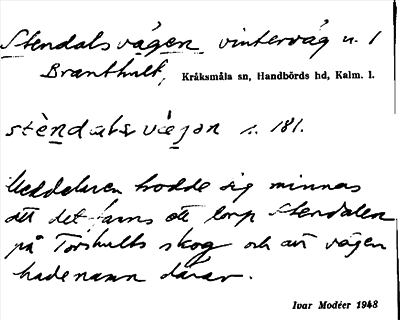 Stendalsvägen, vinterväg u. 1
Branthult, Kråksmåla sn, Handbörds hd, Kalm. l.
stèndalsvä̀gan s. 181.
Meddelaren trodde sig minnas
att det fanns ett torp Stendalen
på Torshults skog och att vägen
hade namn därav.
Ivar Modéer 1948